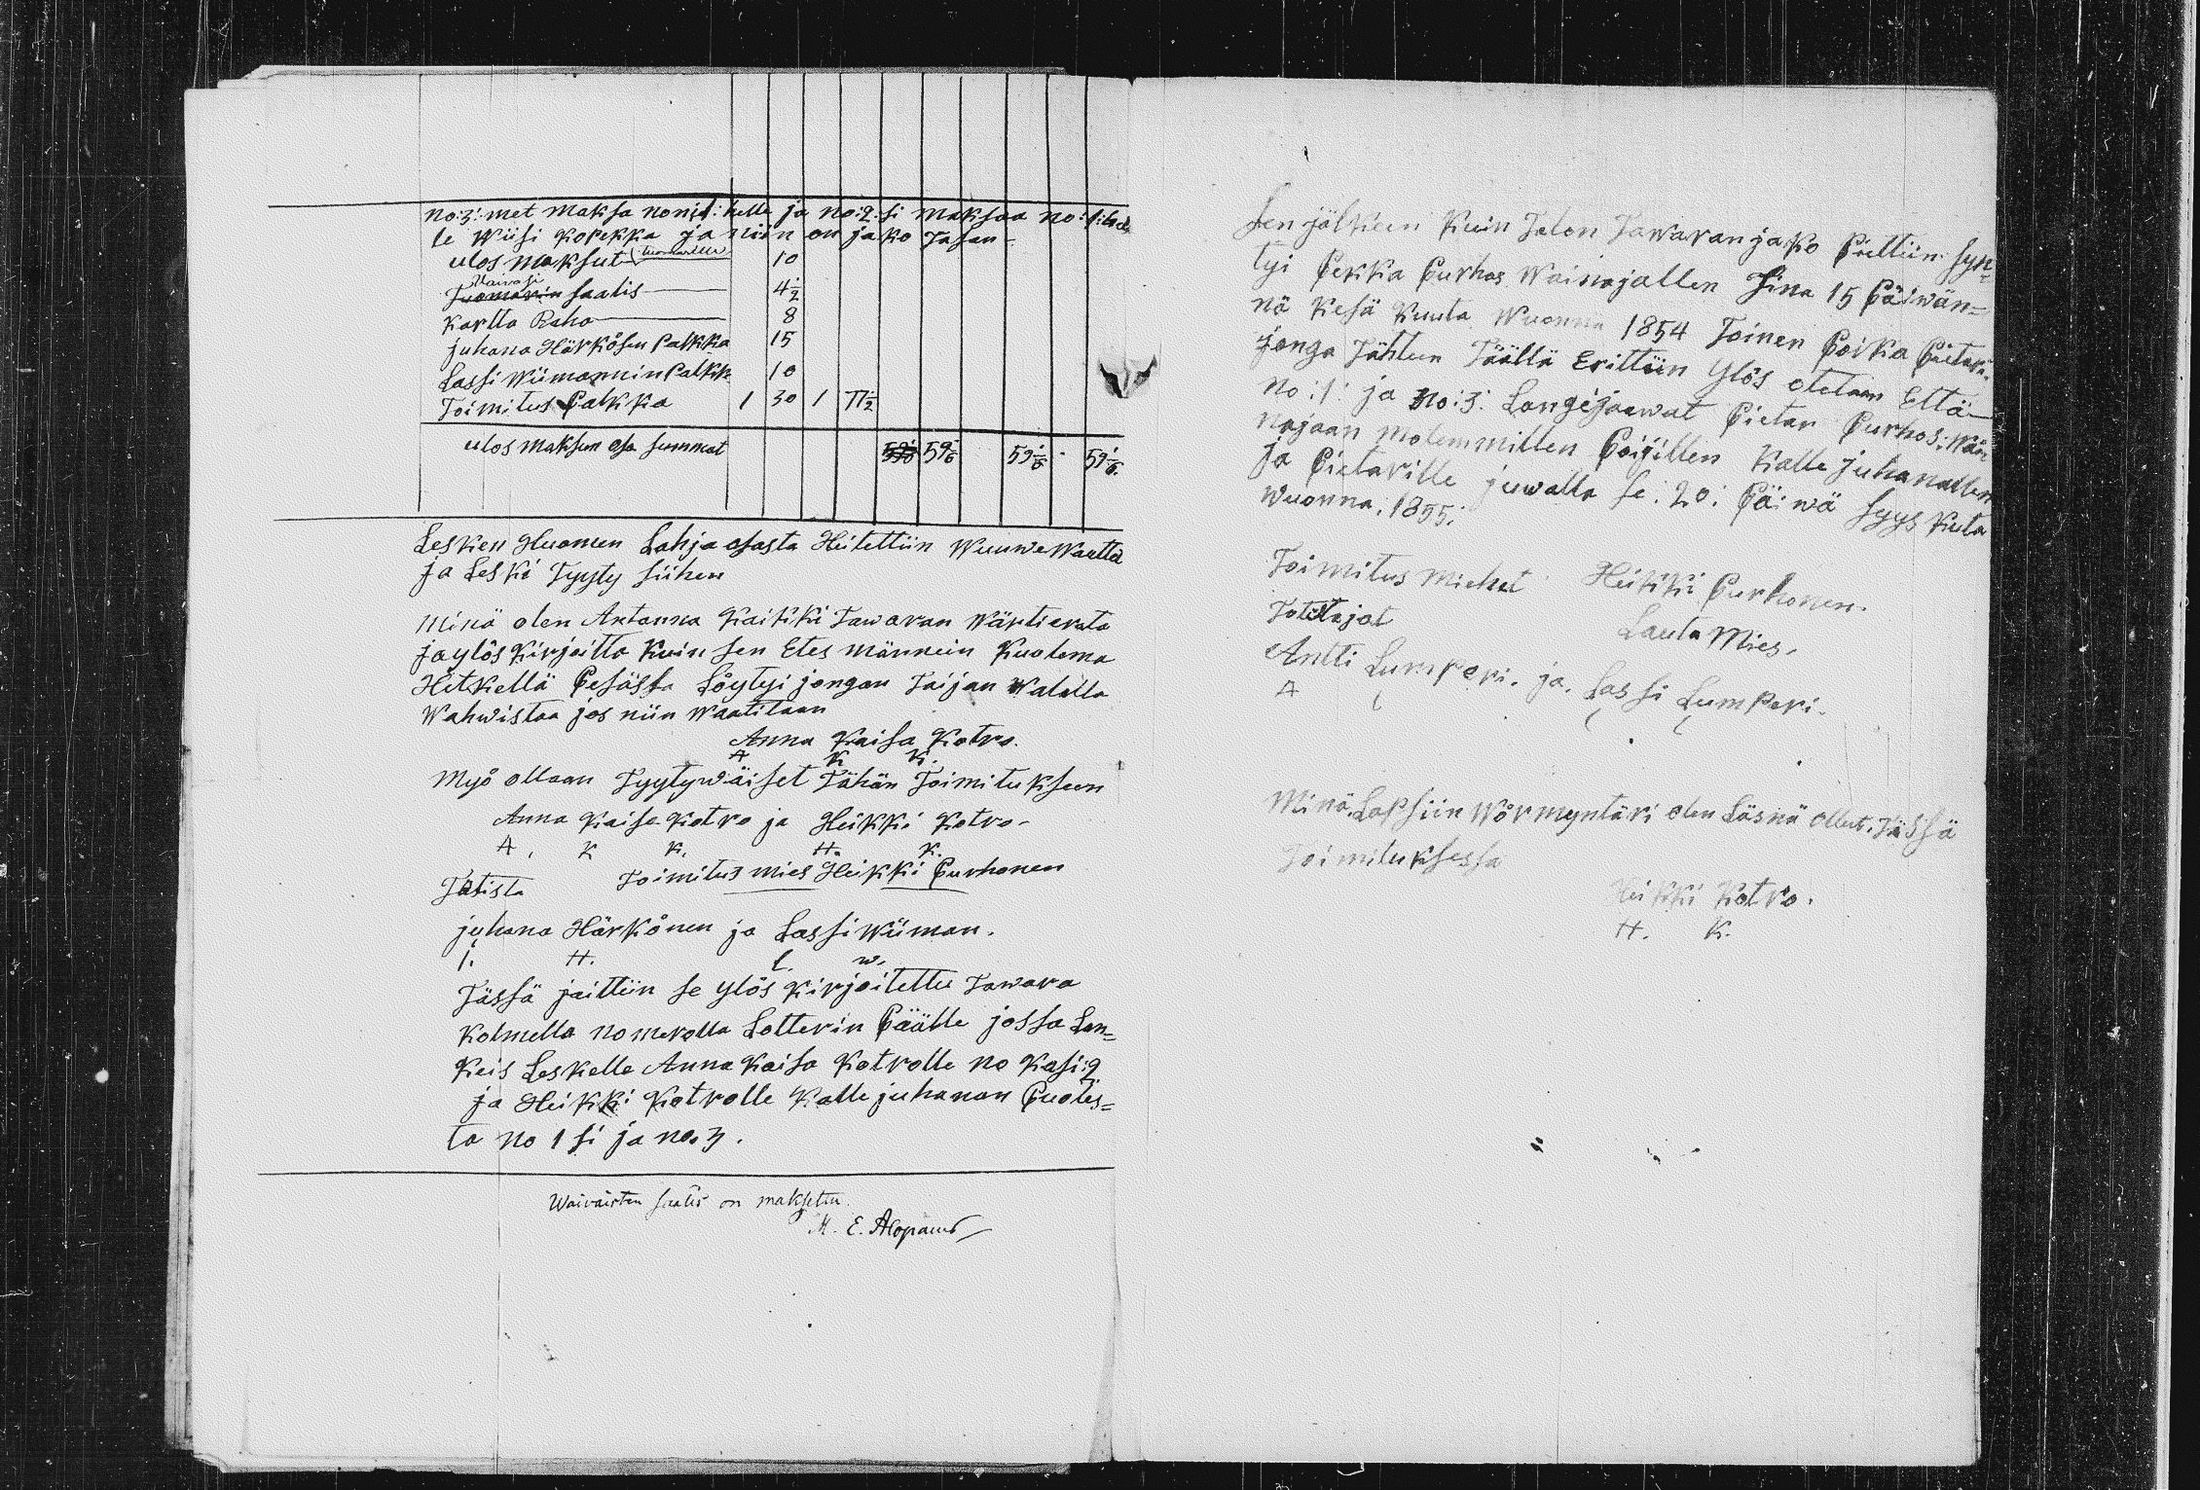 no:3: met maksa no:1: helle ja no:2:si maksaa no:1:
le Wiisi Kopekka ja niin on jako Tasan-
ulos maksut 10
Waivasi
Tuomarin saatis 4 1/2
Kartta Raha 8
juhana Härkösen Palkka 15
Lassi Wiimannin Palkka 10
Toimitus Palkka 1 30 1 77 1/2
ulos maksun osa summat 59 1/6 59 1/6 59 1/6
Lesken Huomen Lahja osasta Heitettiin Wuuwe Waatta
ja Leski Tyyty siihen
Minä olen Antanna Kaikki Tawaran Wärtierata
ja ylös Kirjoitta Kuin sen Etes männein Kuolema
Hetkellä Pesässa Löytyi jongan Taijan Walalla
Wahwistaa jos niin Waatitaan
Anna Kaisa Kotro.
A K K.
Myö ollaan Tyytywäiset Tähän Toimitukseen
Anna Kaisa Kotro ja Heikki Kotro-
A, K K, H. K.
Toimitus mies Heikki Purhonen
Totista
juhana Härkönen ja Lassi Wiiman.
I. H. L. W.
Tässä jaittiin se ylös Kirjoitettu Tawara
Kolmella nomerolla Lotterin Päälle jossa Lan=
Keis Leskelle Anna Kaisa Kotrolle no Kasi:2
ja Heikki Kotrolle Kalle juhanan Puoles=
ta no 1 si ja no.3.
Waivaisten saatis on maksettu.
M. E. Alopaeus
Sen jälkeen Kuin Talon Tawaran jako Piettiin syn=
tyi Pekka Purhos Wainajallen Sina 15 Päiwän=
nä Kesä Kuuta Wuonna 1854 Toinen Poika Pietari.
jonga Tähten Täällä Erittiin Ylös otetaan Että
no:1: ja no:3: Langejaawat Pietar Purhos: Wai
najaan molemmillen Poijillen Kalle juhanallen
ja Pietarille juwalla se: 20: Päiwä syys Kuta
Wuonna. 1855:
Toimitus miehet Heikki Purhonen.
Lauta Mies.
Totistajat
Antti Lumperi. ja. Lassi Lumperi.
A L L L
Minä. Lapsiin Wörmyntäri olen Läsnä ollut. Tässä
Toimituksessa
Heikki Kotro.
H. K.